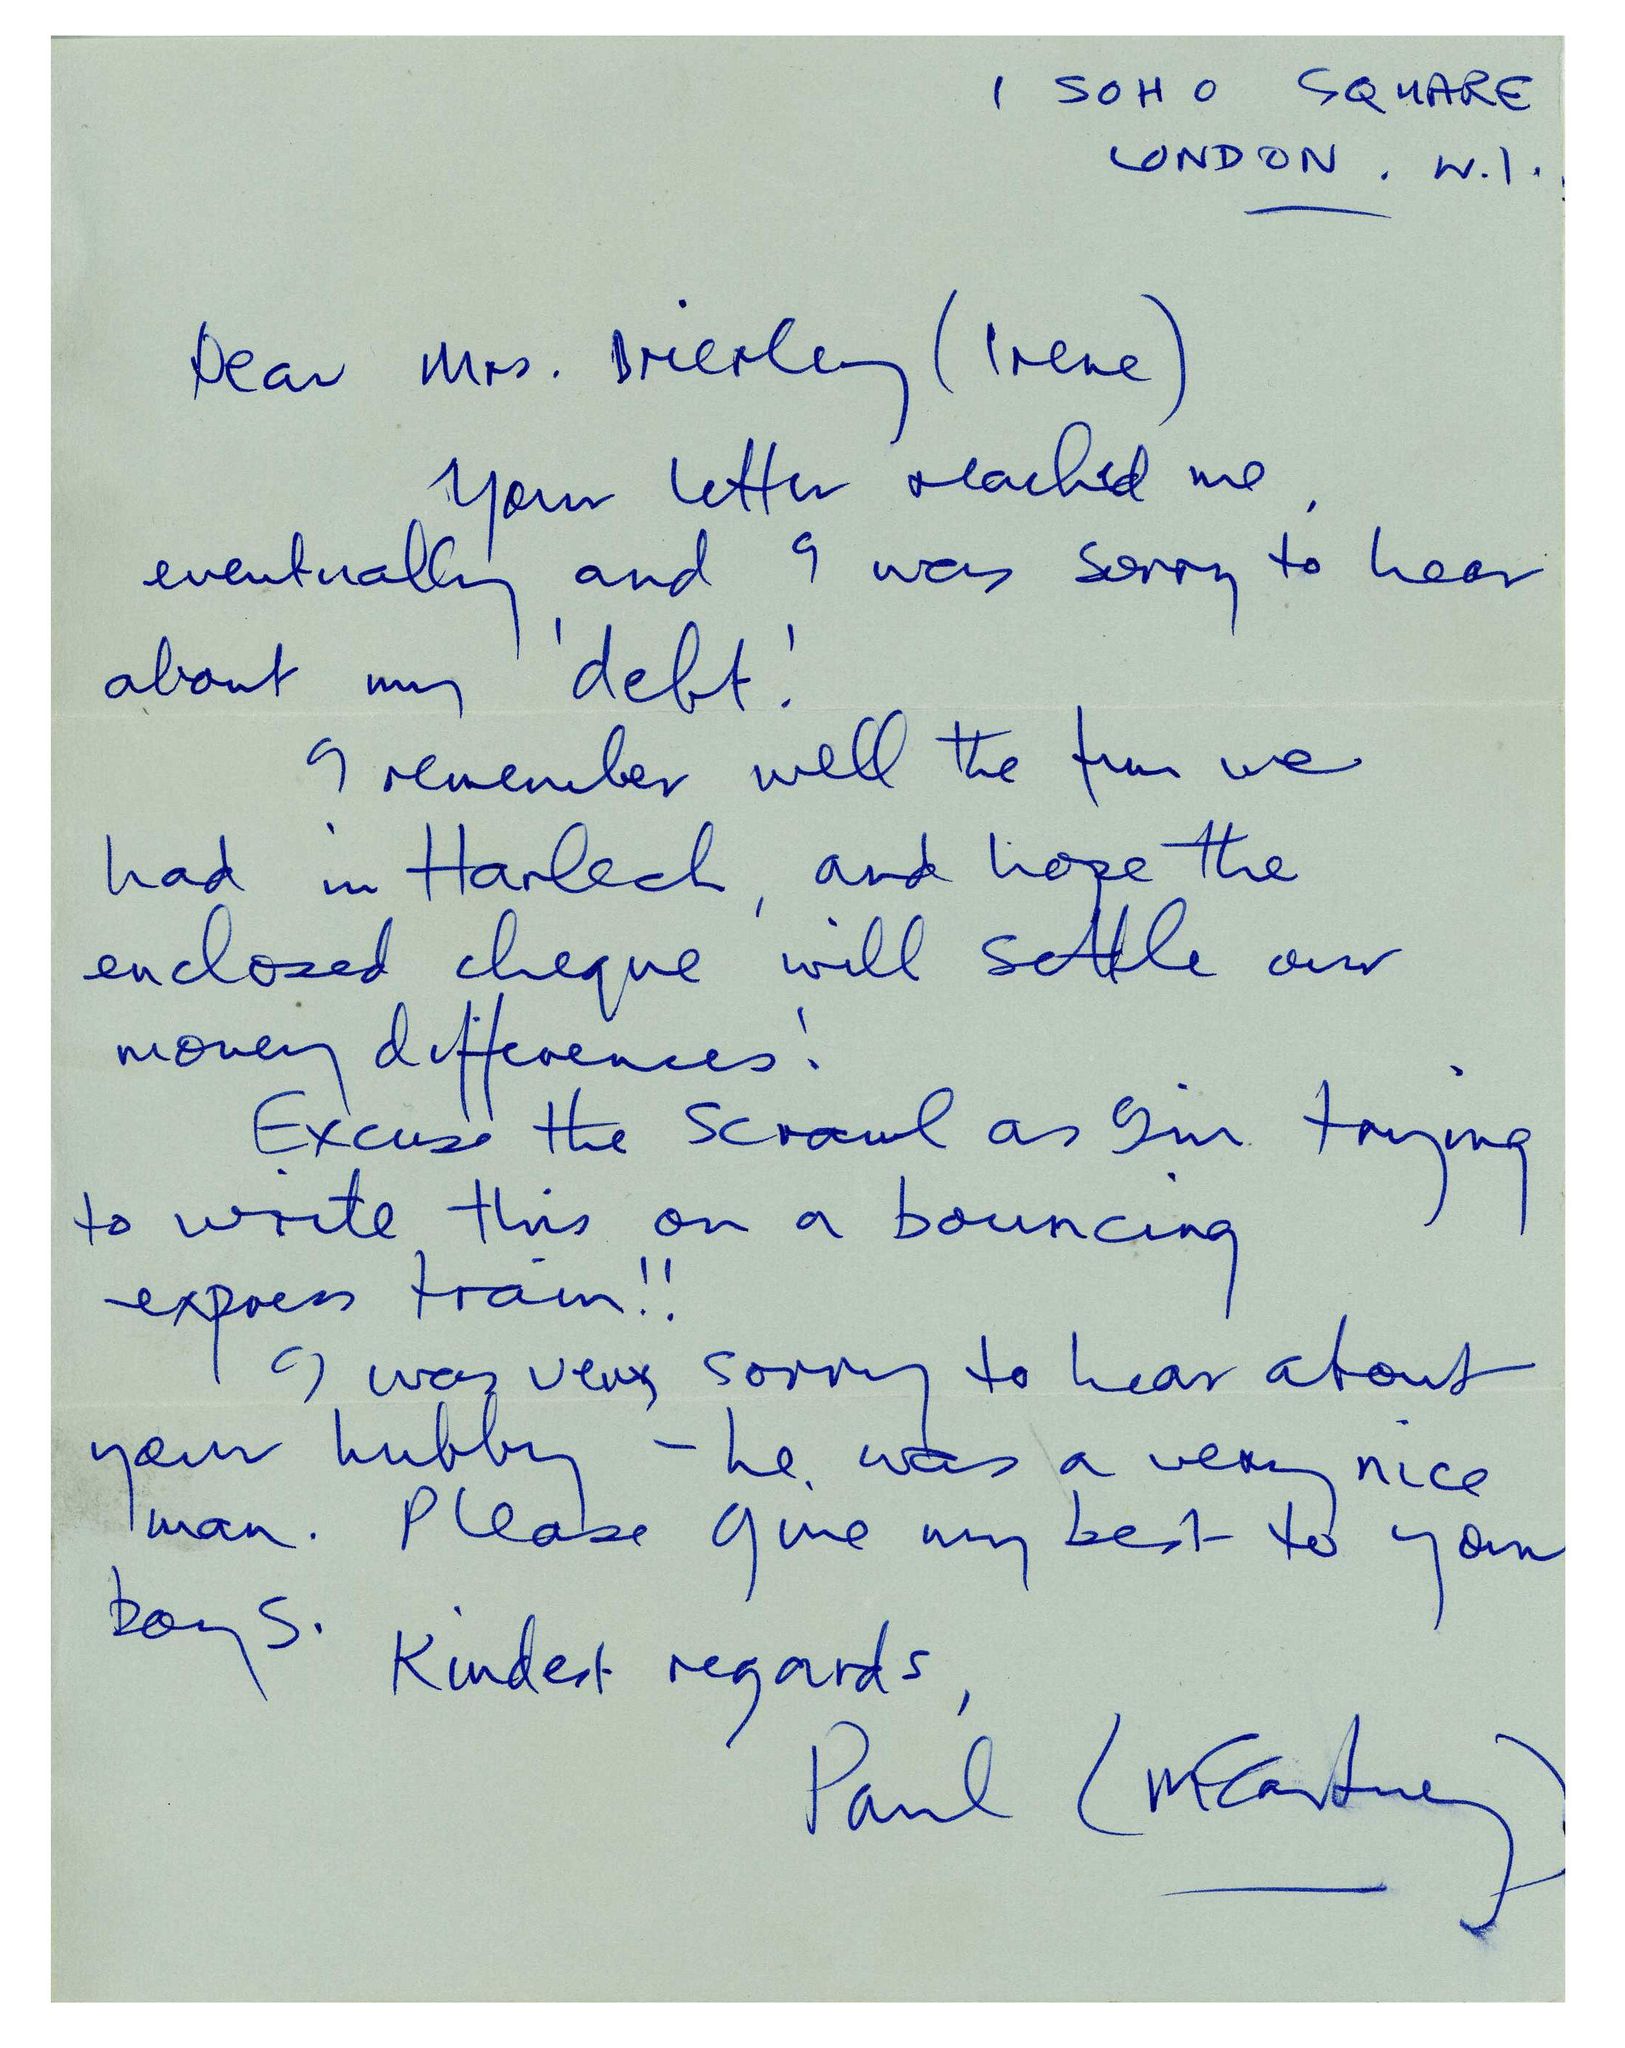 1 SOHO SQUARE
LONDON. W.1.
Dear Mrs. Brierley (Irene)
Your letter reached me,
eventually, and I was sorry to hear
about my 'debt'!
I remember well the fun we
had in Harlech, and hope the
enclosed cheque will settle our
money differences!
Excuse the scrawl as I'm trying
to write this on a bouncing
express train!!
I was very sorry to hear about
your hubby - he was a very nice
man. Please give my best to your
boys.
Kindest regards,
Paul (McCartney)